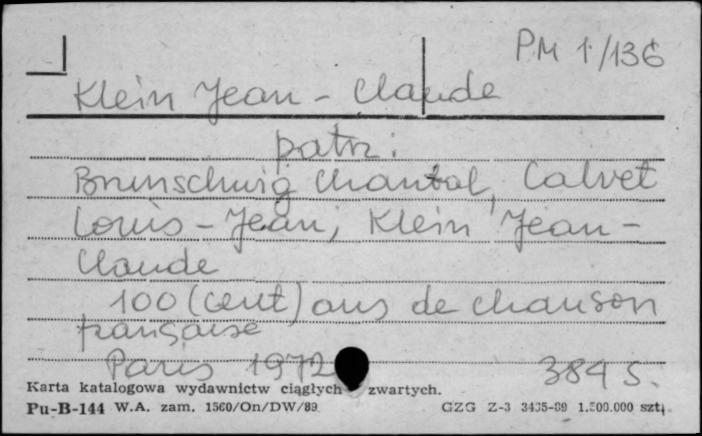 PM 1/136
Klein Jean-Claude
patrz:
Brunschwig Chantal, Calvet
Louis-Jean, Klein Jean-
Claude
100 (cent) ans de chanson
française
Paris 1972 384 s.
Karta katalogowa wydawnictw ciągłych zwartych.
Pu-B-144 W.A. zam. 1560/On/DW/89 GZG Z-3 3435-89 1.500.000 szt.